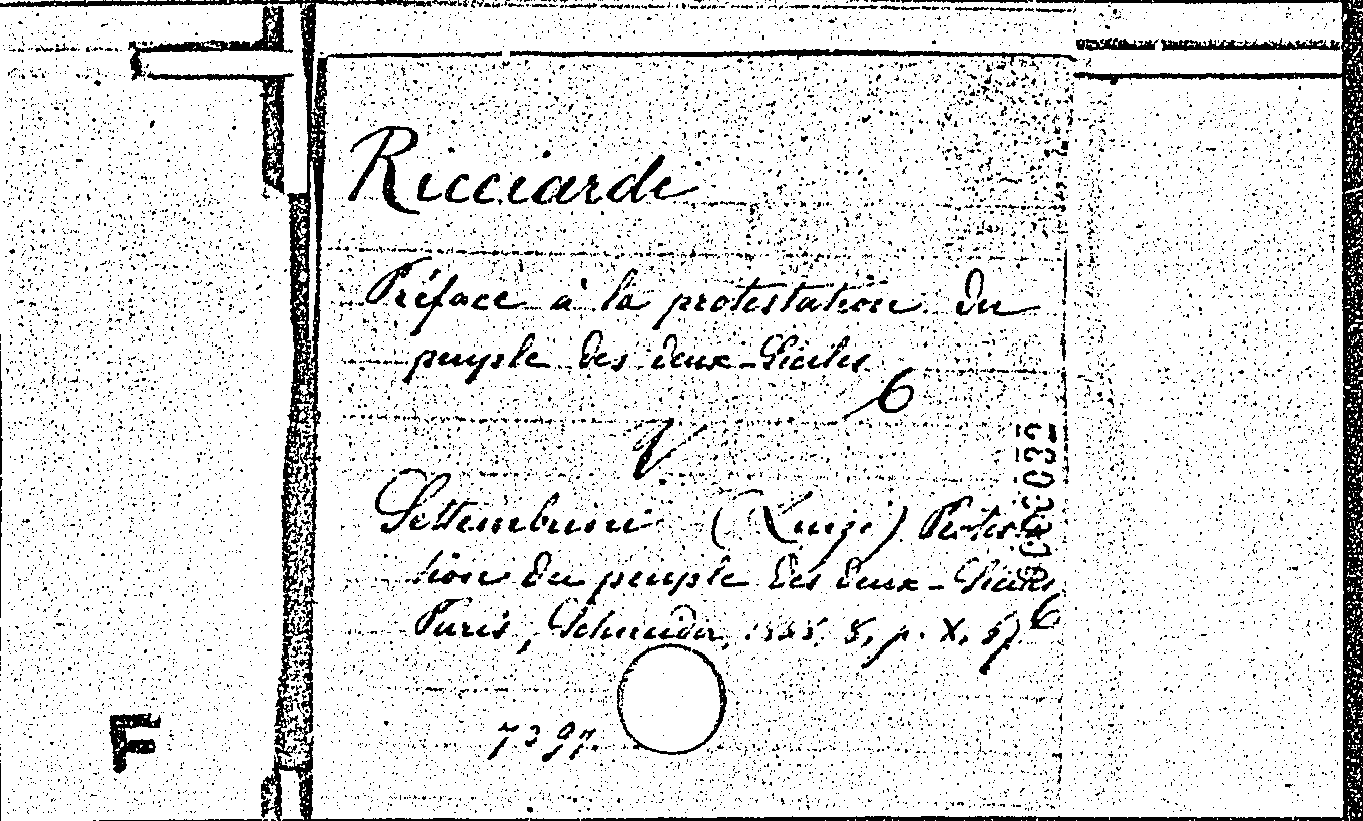 Ricciardi
Préface à la protestation du
peuple des deux-Siciles
6
V
Settembrini (Luigi) Protesta-
tion du peuple des deux-Siciles
Paris, Schneider, 8, p. X, 67
6
7397.
F